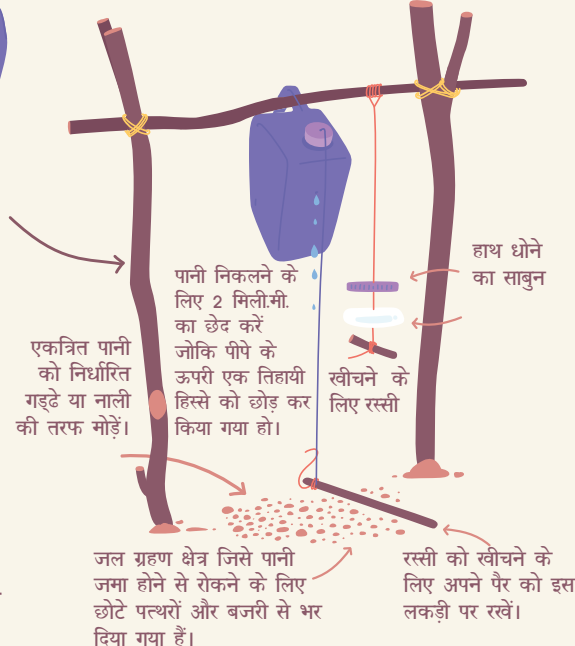 हाथ धोने
का साबुन
पानी निकलने के
लिए 2 मिली.मी.
का छेद करें
जोकि पीपे के
ऊपरी एक तिहायी
हिस्से को छोड़ कर
किया गया हो।
एकत्रित पानी
को निर्धारित
गड्ढे या नाली
की तरफ मोड़ें।
खीचने के
लिए रस्सी
जल ग्रहण क्षेत्र जिसे पानी
जमा होने से रोकने के लिए
छोटे पत्थरों और बजरी से भर
दिया गया हैं।
रस्सी को खीचने के
लिए अपने पैर को इस
लकड़ी पर रखें।